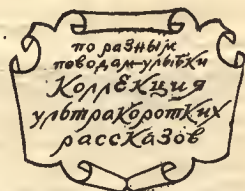 по разным
поводам-улыбки
КоллЕКция
ультракоротких
рассказов